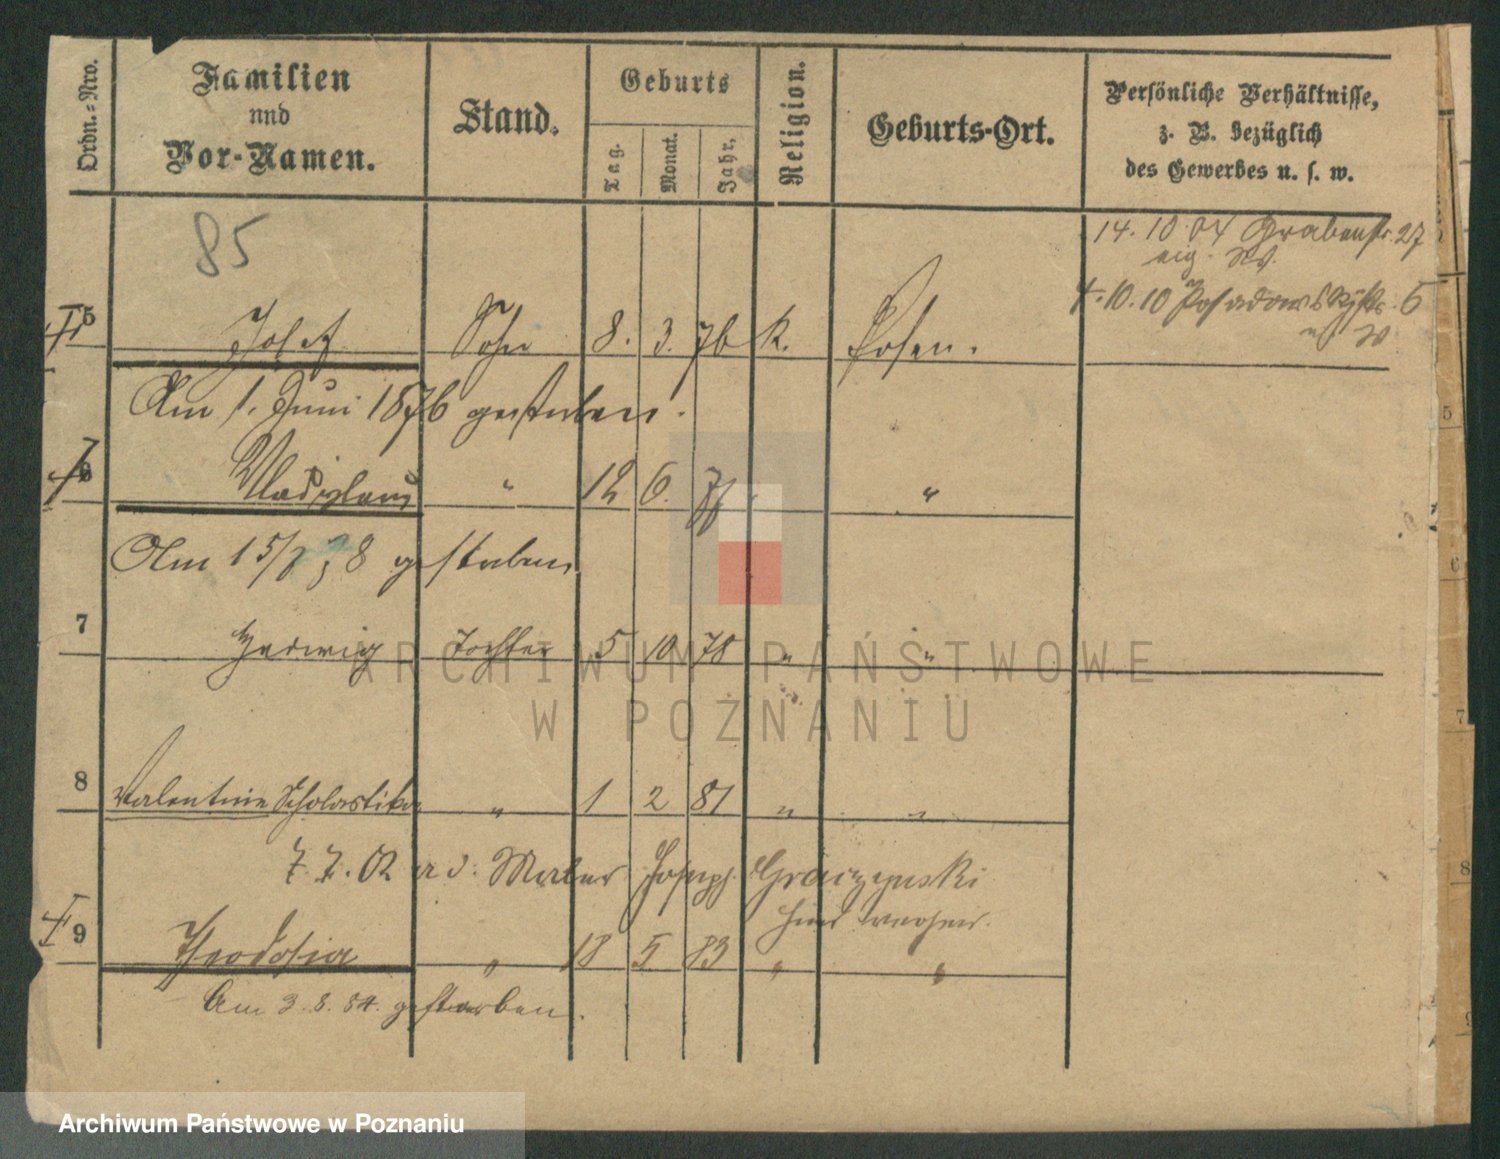 Ordn.-Nro.
Familien
und
Vor-Namen.
Stand.
Geburts
Tag.
Monat.
Jahr.
Religion.
Geburts-Ort.
Persönliche Verhältnisse,
z. B. bezüglich
des Gewerbes u. s. w.
85
14. 10 04 Grabenstr. 27
4. 10. 10 Posadowskystr. 6
5 Josef Sohn 8. 3. 76 K. Posen.
Am 1. Juni 1876 gestorben.
6 Vladislaus " 12 6. 77 "
Am 15/7 78 gestorben
7 Hedwig Tochter 5 10 78 " "
8 Valentine Scholastika " 1 2 81 " "
7. 7. 02 a. d. Maler Joseph Graczynski
9 Theodosia " 18 5 83 " "
Am 3. 8. 84. gestorben.
5
6
7
8
9
ARCHIWUM PAŃSTWOWE
W POZNANIU
Archiwum Państwowe w Poznaniu